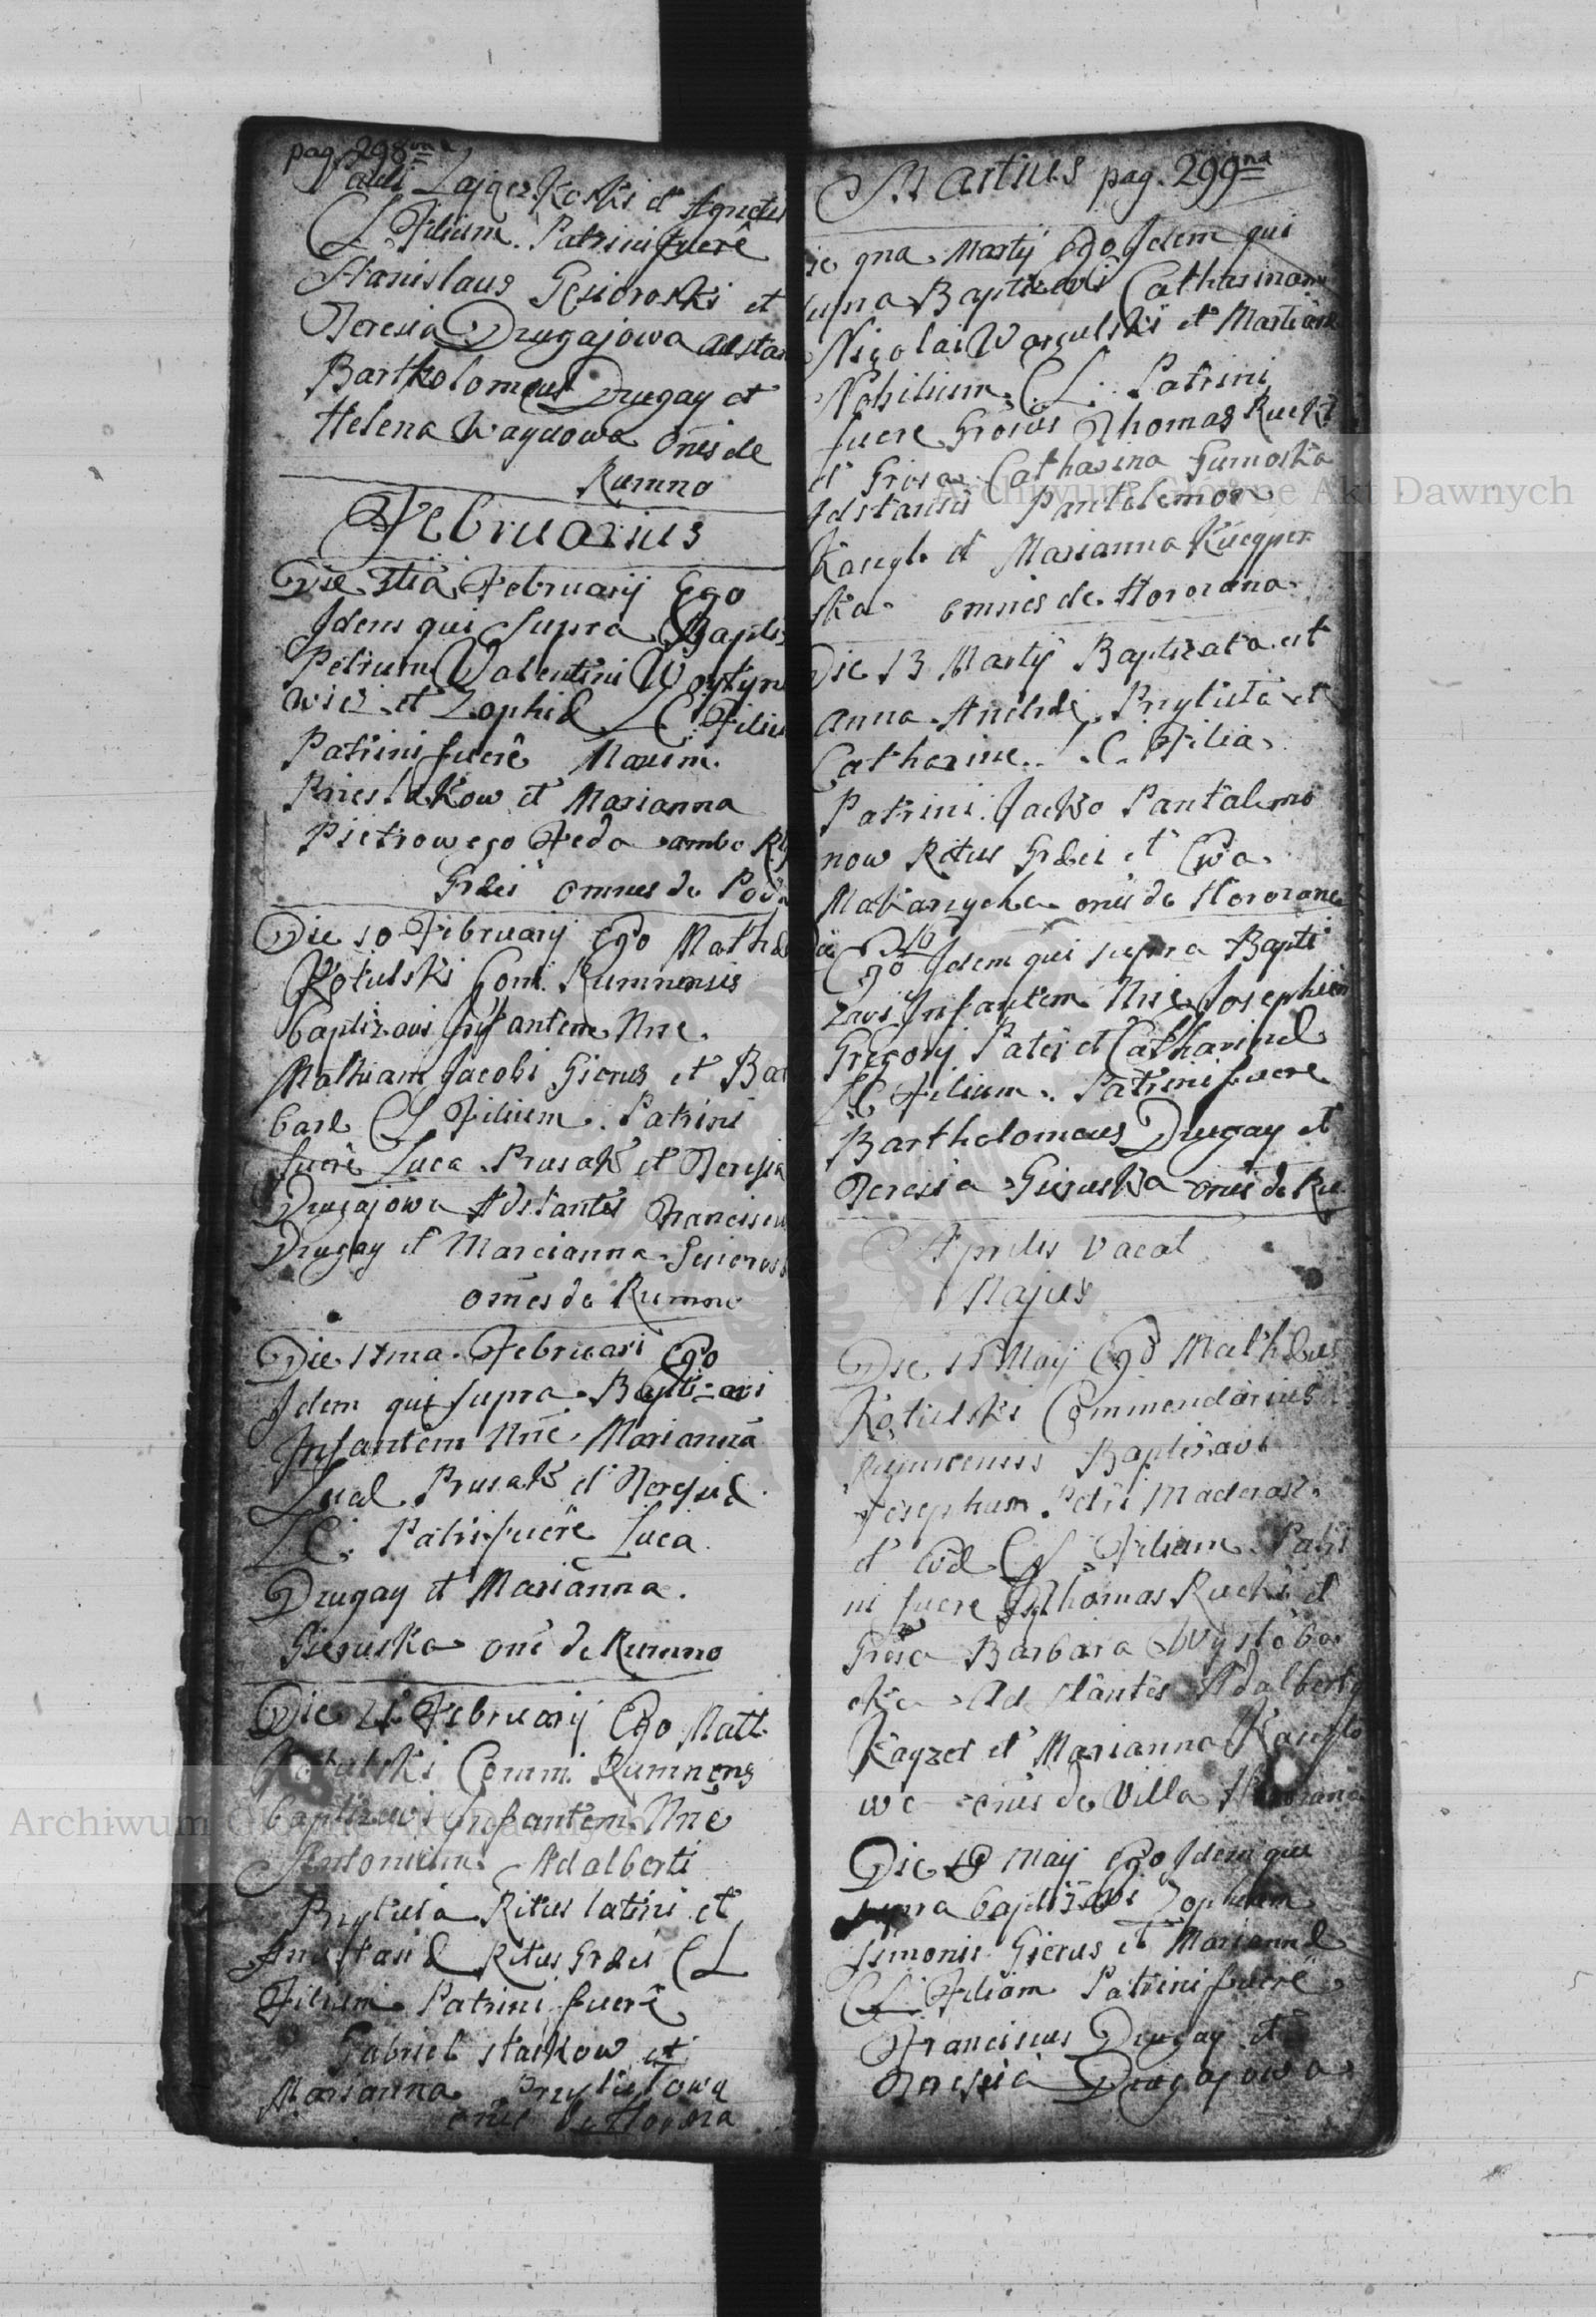 pag. 298
Pauli Lajgerkoski et Agnetis
CL Filium. Patrini fuere
Stanislaus Gąsioroski et
Teresia Drugajowa adstan
Bartholomeus Drugay et
Helena Wayuowa Ones de
Rumno
Februarius
Die 3tia February Ego
Idem qui supra Baptis
Petrum Valentini Woytyn
wici et Zophiæ LC. Filiu
Patrini fuerê Maxim
Priestakow et Marianna
Pietrowego Feda ambo
Grdei omnes de
Die 10 February Ego Mathæ
Kotulski Com. Rumnensis
baptizavi Infantem Nne.
Mathiam Jacobi Gierus et Bar
baræ CL Filium. Patrini
fuerê Luca Prusak et Teresia
Drugajowa Adstantes Franciscu
Drugay et Marcianna
omēs de Rumno
Die 17ma Februari Ego
Idem qui supra Baptizavi
Infantem Nnē. Mariannā
Lucæ Prusak et Teresiæ
LC. Patri fuērē Luca
Drugay et Mariānna.
Gieruska onē de Rumno
Die 21 February Ego Matt.
Kotulski Comm. Rumnens
baptizavi Infantem Nnē
Antonium Adalberti
Pryluta Ritus latini et
Anastasiæ Ritus Grdei CL
Filium Patrini fuerê
Gabriel stackow et
Marianna Prylutowa
onēs de
Martius pag. 299na
ie 9na Marty Ego Idem qui
supra Baptizavi Catharinam
Nicolai Warculski et Martiānæ
Nobilium CL. Patrini
fuere Grosus Thomas Rucki
et Grosa Catharina Gumoska
Adstantes Pantalemon
Kaczyb et Marianna
ska omnes de Hororana
Die 13 Marty Baptizata est
Anna Andreæ Pryluta et
Catharine L.C. Filia
Patrini Jacko Pantalemo
now Ritus Grdei et Ewa
Makarycha onēs de Hororane
Die 16
Ego Idem qui supra Bapti
zavi Infantem Nne Josephum
Gregory Patēr et Catharinæ
LC Filium. Patrini fuere
Bartholomeus Drugay et
Teresia Gieruska onēs de Ru
Aprilis vacat
Majus
Die 15 May Ego Mathæus
Kotulski Commendarius
Rumnensis Baptizavi
Josephum Petri Maderak
et Evæ CL Filium Patri
ni fuere Thomas Rucki et
Grosa Barbara Wysłobo
cka Adstantes Adalberty
Kayzer et Marianna
wa onēs de Villa Hororana
Die 19 May Ego Idem qui
supra baptizavi Zophiam
Simonis Gierus et Mariannæ
CL. Filiam Patrini fuerē
Franciscus Drugay et
Teresia Drugajowa
Archiwum Główne Akt Dawnych
Archiwum Główne Akt Dawnych